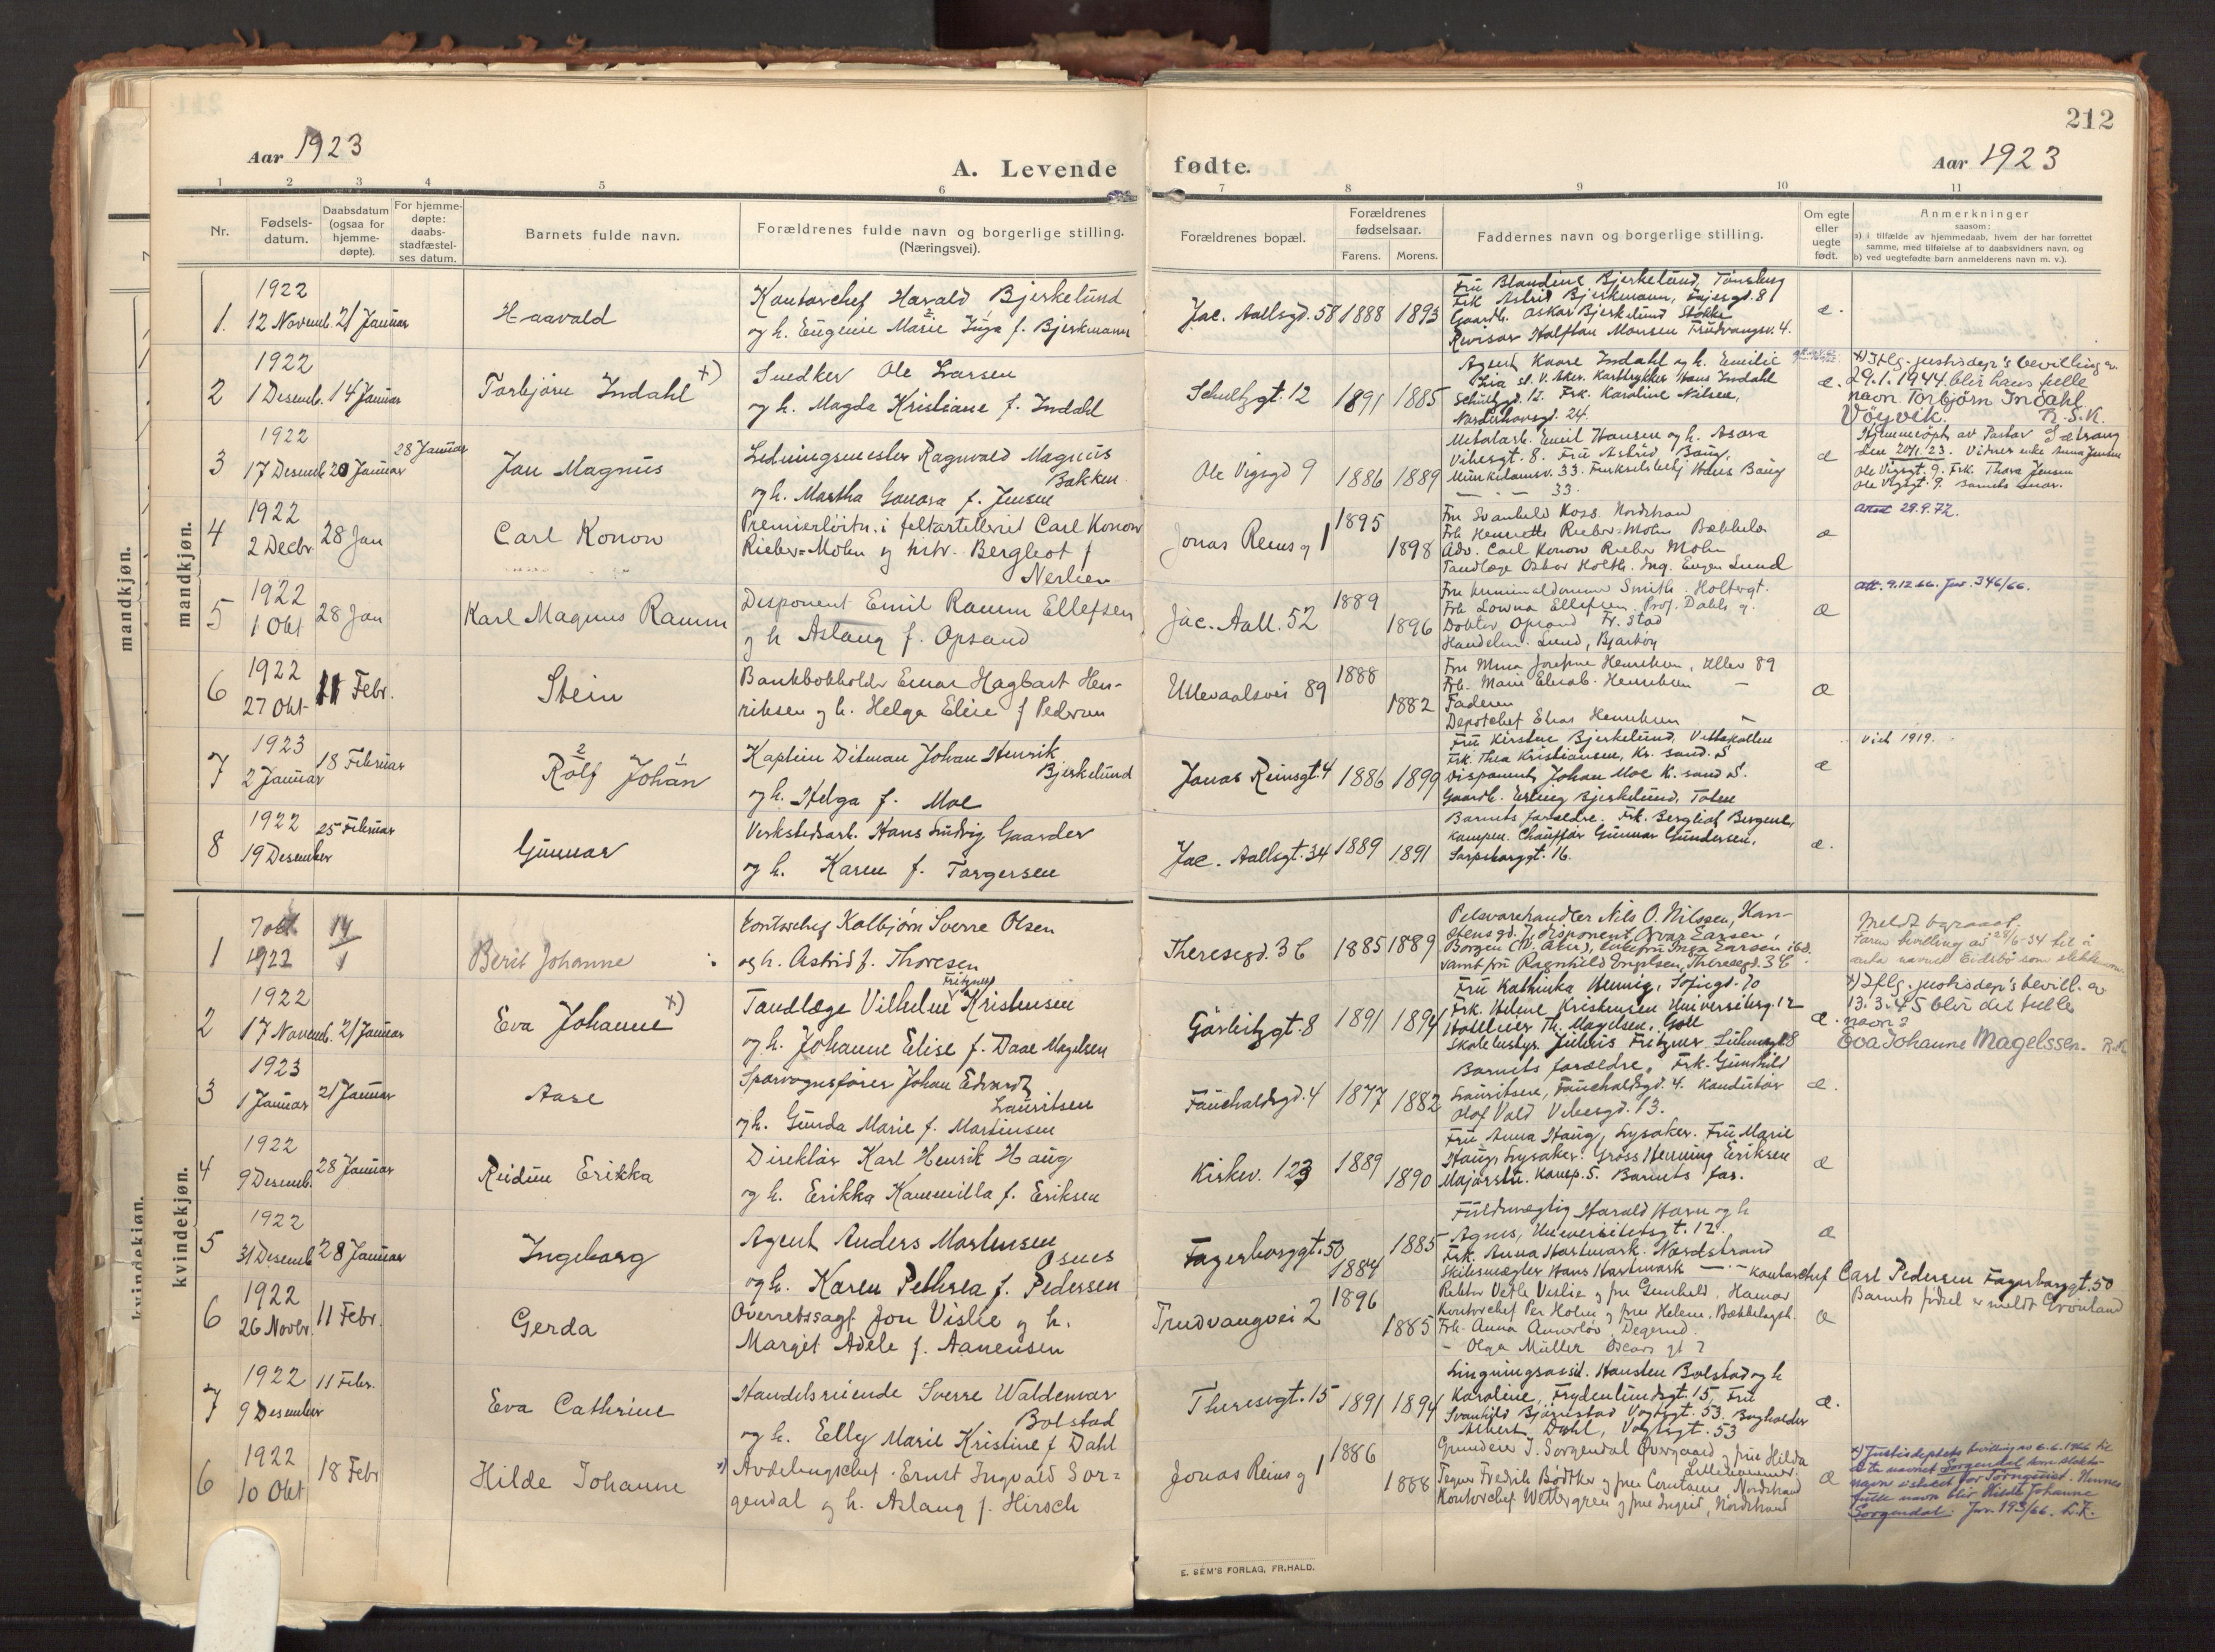 212
Aar 1923
A. Levende
fødte.
Aar 1923
1 2 3 4 5 6
7 8 9 10 11
Nr.
Fødsels-
datum.
Daabsdatum
(ogsaa for
hjemme-
døpte).
For hjemme-
døpte:
daabs-
stadfæstel-
ses datum.
Barnets fulde navn.
Forældrenes fulde navn og borgerlige stilling.
(Næringsvei).
Forældrenes bopæl.
Forældrenes
fødselsaar.
Farens. Morens.
Faddernes navn og borgerlige stilling.
Om egte
eller
uegte
født.
Anmerkninger
saasom:
a) i tilfælde av hjemmedaab, hvem der har forrettet
samme, med tilføielse af to daabsvidners navn, og
b) ved uegtefødte barn anmelderens navn m. v.).
mandkjøn.
mandkjøn.
1. 1922
12 Novemb. 21 Januar
Haavald
Kontorchef Harald Bjerkelund
og h. Eugenie Marie Inga f. Bjerkmann
Jac. Aallsgd. 58 1888 1893
Fru Blandine Bjerkelund, Tønsberg
Frk Astrid Bjerkmann,
Gaardb. Oskar Bjerkelund Stokke
Revisor Halfdan Monsen Trudvangsv. 4.
æ.
2 1922
1 Desemb. 14 Januar
Torbjørn Indahl x)
Snedker Ole Larsen
og h. Magda Kristiane f. Indahl
Schultzgt. 12 1891 1885
Agent Kaare Indahl og h. Emilie
V. Aker. Karttrykker Hans Indahl
Schultzgd. 12. Frk. Karoline Nilsen,
Norderhovsgd. 24.
æ.
x) Iflg. justisdep's bevilling av
29.1.1944 blir hans fulle
navn Torbjørn Indahl
Vöyvik. R.S.K.
3 1922
17 Desemb. 20 Januar 28 Januar
Jan Magnus
Ledningsmester Ragnvald Magnus
Bakken
og h. Martha Gonora f. Jensen
Ole Vigsgd 9 1886 1889
Metalarb. Emil Hansen og h. Asora
Vibesgt. 8. Fru Astrid Baug,
Munkedamsv. 33. Hans Baug
— " — 33.
æ
Hjemmedøpt av Pastor Sætrang
den 20/1. 23. Vidner enke Anna Jensen
Ole Vigsgt. 9. Frk. Thora Jensen
Ole Vigsgt. 9. barnets mor.
4 1922
2 Decbr. 28 Jan
Carl Konow
Premierløitn. i feltartilleriet Carl Konow
Rieber-Mohn og hstr. Bergliot f
Nerlien
Jonas Reins g 1 1895
1898
Fru Svanhild Koss. Nordstrand
Frk Henriette Rieber-Mohn Bækkel.
Adv. Carl Konow Rieber Mohn
Tandlæge Oskar Holth. Ing. Eugen Lund
æ
attest 29.9.72.
5 1922
1 Okt 28 Jan
Karl Magnus Ramm
Disponent Emil Ramm Ellefsen
og h Aslaug f. Opsand
Jac. Aall. 52 1889
1896
Smith. Holtergt.
Frk Lowna Ellefsen. Prof. Dahls g.
Doktor Opsand Fr. stad
Handelsm. Lund, Bjarkøy
æ
att. 9.12.66. Jnr. 346/66.
6 1922
27 Okt- 11 Febr.
Stein
Bankbokholder Einar Hagbart Hen-
riksen og h. Helga Elise f Pedersen
Ullevaalsvei 89 1888
1882
Fru Mina Josefine Henriksen, Ullev 89
Frk. Marie Elisab. Henriksen —
Faderen
Depotchef Elias Henriksen —
æ
7 1923
2 Januar 18 Februar
2 1
Rolf Johan
Kaptein Ditman Johan Henrik
Bjerkelund
og h. Helga f. Moe
Jonas Reinsgt. 4 1886 1899
Fru Kirstine Bjerkelund, Vettakollen
Frk. Thea Kristiansen, Kr. sand. S
Disponent Johan Moe K. sand S.
Gaardb. Erling Bjerkelund, Toten
æ
viet 1919.
8 1922
19 Desember 25 Februar
Gunnar
Verkstedsarb. Hans Ludvig Gaarder
og h. Karen f. Torgersen
Jac. Aallsgt. 34 1889 1891
Barnets forældre. Frk. Bergliot Bergene,
Kampen. Chauffør Gunnar Gundersen,
Sarpsborggt. 16.
æ.
kvindekjøn.
kvindekjøn.
1 7 okt
1922 14
1
Berit Johanne
Kontorchef Kolbjørn Sverre Olsen
og h. Astrid f. Thoresen
Theresegd. 36 1885 1889
Pelsvarehandler Nils O. Nilssen, Han-
stensgd. 7, disponent Ivar Larsen,
Borgen (V. Aker), enkefru Inga Larsen ibd.
samt fru Ragnhild Engelsen, Theresegd. 36
Faren bevilling av 28/6-34 til å
anta navnet Eidsbö som slektsnavn.
2 1922
17 Novemb. 21 Januar
Eva Johanne x)
Fritzner
Tandlæge Vilhelm Kristensen
og h. Johanne Elise f. Daae Magelsen
Gørbitzgt. 8 1891 1894
Fru Kathinka Hennig, Sofiegd. 70
Frk. Helene Kristensen Universitetsg. 12
Hotelleier Th. Magelsen, Goll
Skolebestyr. Julius Fritzner.
æ.
x) Iflg. justisdep's bevill. av
13.3.45 blir det fulle
navn:
Eva Johanne Magelssen. R.
3 1923
1 Januar 21 Januar
Aase
Sporvognsfører Johan Edvardt
Lauritsen
og h. Gunda Marie f. Martinsen
Fauchaldsgd. 4 1877 1882
Barnets forældre, Frk. Gunhild
Lauritsen, Fauchaldsgd. 4. Konduktør
Olof Vold Vibesgd. 13.
æ.
4 1922
9 Desemb. 28 Januar
Reidun Erikka
Direktør Karl Henrik Haug
og h. Erikka Kammilla f. Eriksen
Kirkev. 123 1889
1890
Fru Anna Haug, Lysaker. Fru Marie
Haug, Lysaker. Gross Henning Eriksen
Majorstu. Komp. S. Barnets far.
æ
5 1922
31 Desemb 28 Januar
Ingeborg
Agent Anders Martinsen
Osnes
og h. Karen Pethrea f. Pedersen
Fagerborggt. 50 1884
1885
Fuldmægtig Harald Horn og h
Agnes, Universitetsgt. 12.
Frk. Anna Hartmark. Nordstrand
Skibsmægler Hans Hartmark — " — Kontorchef Carl Pedersen Fagerborggt. 50
æ
6 1922
26 Novbr. 11 Febr.
Gerda
Overretssagf Jon Vislie og h.
Margit Adele f. Aanensen
Trudvangvei 2 1896
1885
Rektor Vetle Vislie og fru Gunhild. Hamar
Kontorchef Per Holm og fru Helene. Bækkelagsh.
Frk. Anna Degerud.
— Olga Müller Oscars gt 7
æ
Barnets fødsel er meldt Grønland
7 1922
9 Desember 11 Febr.
Eva Cathrine
Handelsreisende Sverre Waldemar
Bolstad
og h. Elly Marie Kristine f Dahl
Theresegt. 15 1891 1894
Ligningsassist. Karsten Bolstad og h
Karoline, Frydenlundsgt. 15, Fru
Svanhild Bjørnstad Vogtsgt. 53. Bogholder
Albert Dahl, Vogtsgt. 53
æ.
6 1922
10 Okt 18 Febr
Hilde Johanne x)
Avdelingschef. Ernst Ingvald Sor-
gendal og h. Aslaug f. Hirsch
Jonas Reins g 1 1886
1888
Grunder J. Sorgendal Overgaard og frue Hilda
Lillehammer.
Tegner Fredrik Bødtker og frue Constance, Nordstrand
Kontorchef Wettergreen og frue Ingrid, Nordstrand
æ
x) Justisdeptets bevilling av 6.6.1966 til
å ta navnet Sorgendal som slekts-
navn istedet for Törngqvist. Hennes
fulle navn blir Hilde Johanne
Sorgendal. Jnr. 193/66. L.K.
E. SEM'S FORLAG, FR.HALD.